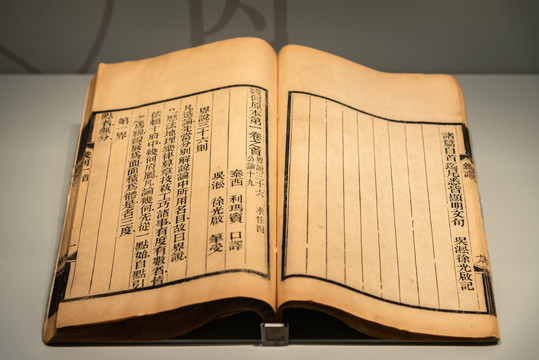 諸篇自首迄尾悉皆顯明文句 吳淞徐光啟記
幾何原本第一卷之首 界說三十六 求作四 公論十九
泰西 利瑪竇 口譯
吳淞 徐光啟 筆受
界說三十六則
凡造論先當分別解說論中所用名目故曰界說
凡歷法地理樂律算章技藝工巧諸事有度有數者皆
依賴十府中幾何府屬凡論幾何先從一點始自點引
之為線線展為面面積為體是名三度
第一界
點者無分
幾何一首